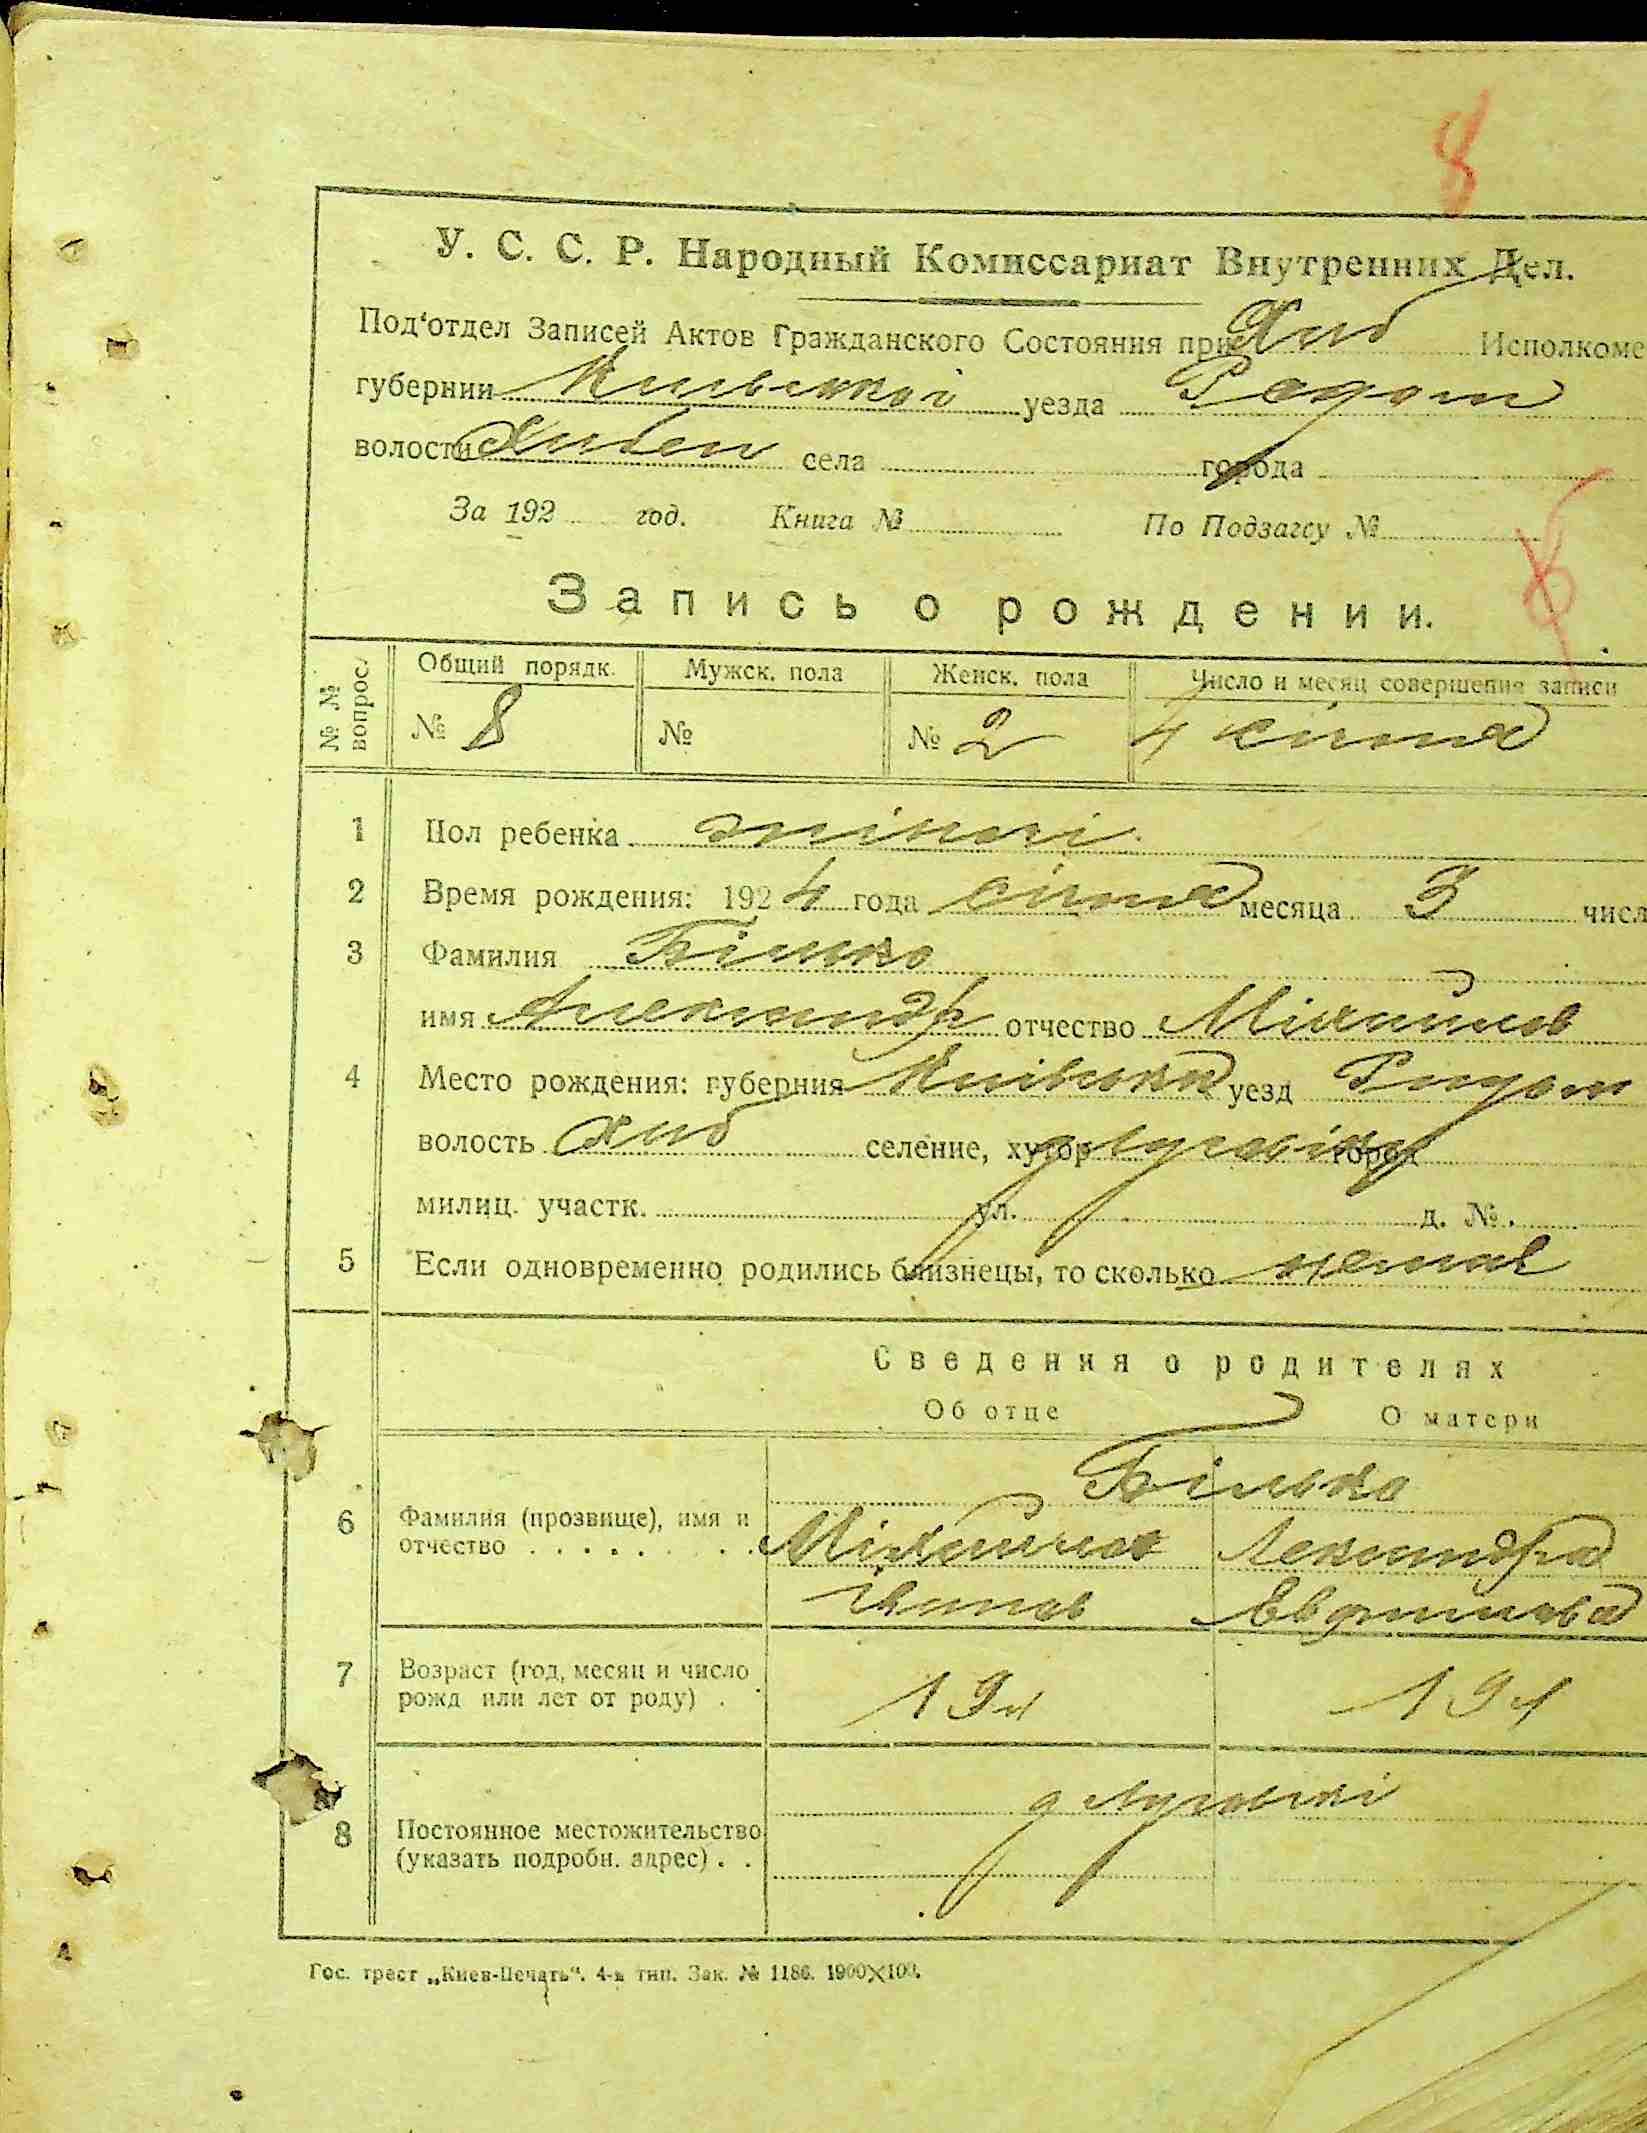 8
У. С. С. Р. Народный Комиссариат Внутренних Дел.
Под'отдел Записей Актов Гражданского Состояния при Хаб Исполкоме
губернии Київської уезда Радом
волости Хабен села города
За 192 год. Книга № По Подзагсу №
8
Запись о рождении.
№ № вопрос. Общий порядк. Мужск. пола Женск. пола Число и месяц совершения записи
№ 8 № № 2 4 січня
1 Пол ребенка жіночі
2 Время рождения: 1924 года січня месяца 3 числ
3 Фамилия Білько
имя Александр отчество Міхайлов
4 Место рождения: губерния Київська уезд Радом
волость Хаб селение, хутор д Луговікі город
милиц. участк. ул. д. №.
5 Если одновременно родились близнецы, то сколько немає
Сведения о родителях
Об отце О матери
Білько
6 Фамилия (прозвище), имя и Міхайло Лександра
отчество
7 Возраст (год, месяц и число 19 л 19 л
рожд или лет от роду) .
8 д Луговікі
Постоянное местожительство
(указать подробн. адрес) . .
Гос. трест „Киев-Печать“. 4-я тип. Зак. № 1186. 1900×100.